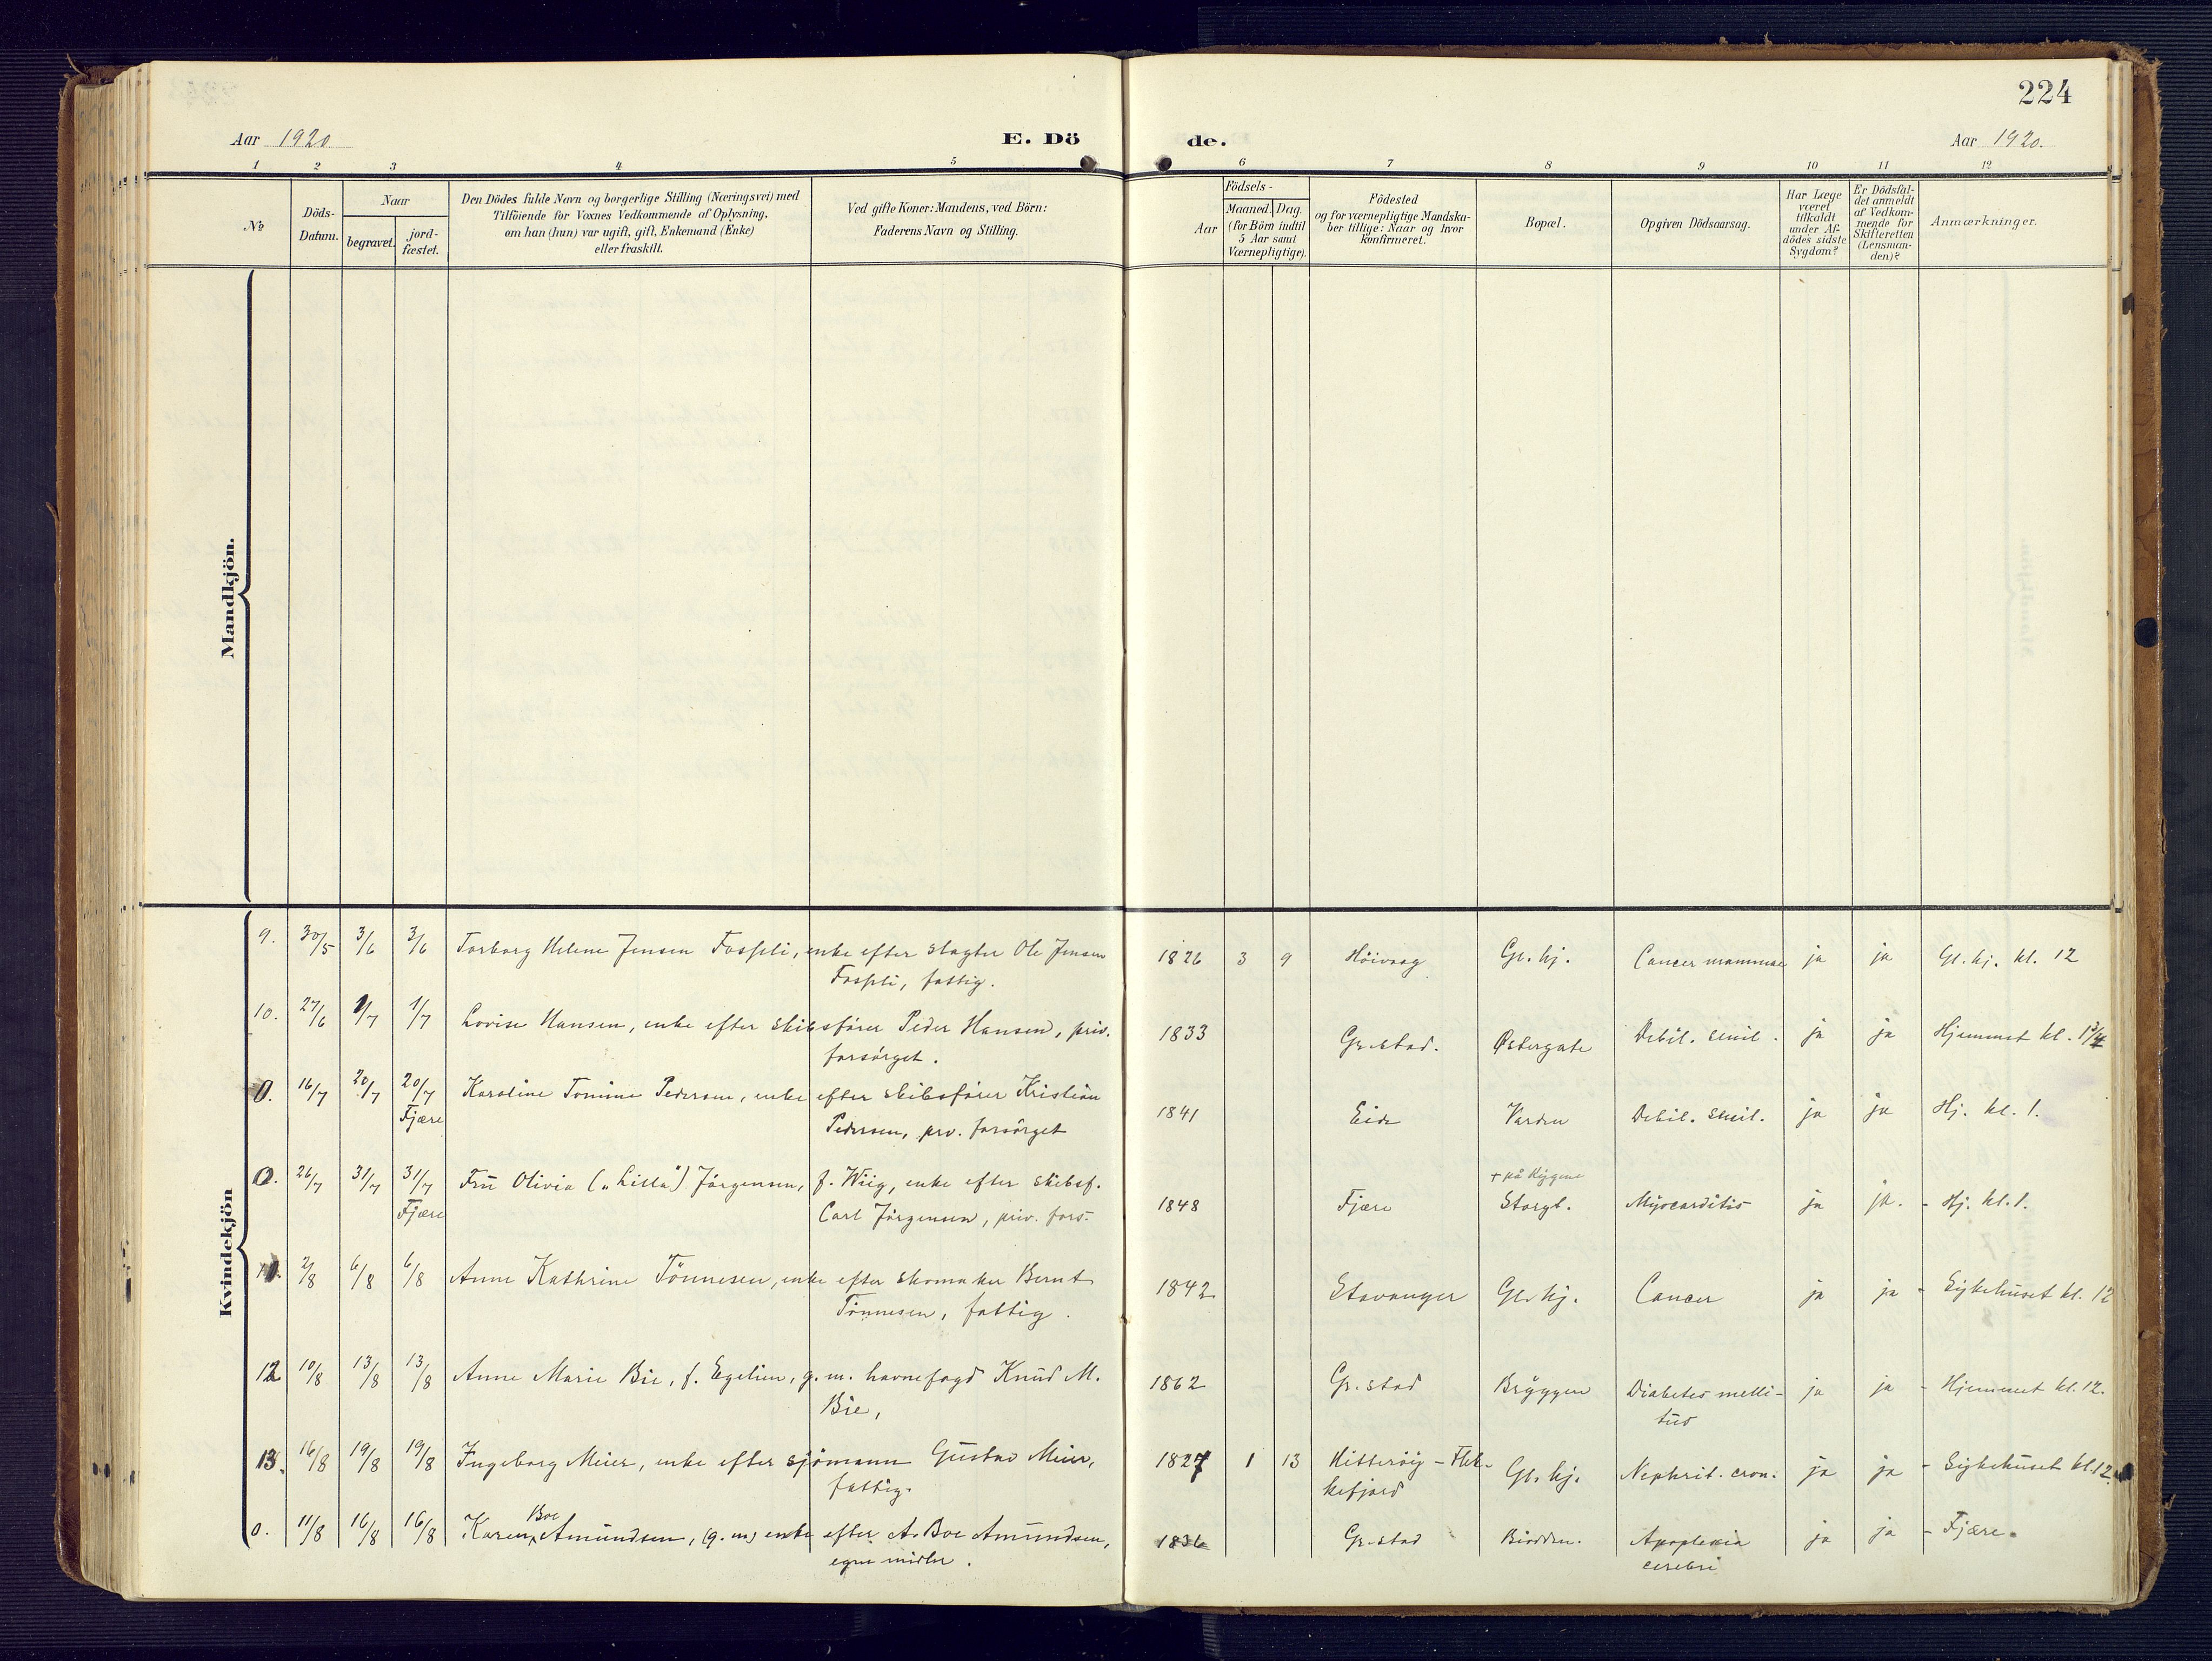 224
Aar 1920
E. Dö
de.
Aar 1920.
1 2 3 4 5 6 7 8 9 10 11 12
No
Döds-
Datum.
Naar
begravet.
jord-
fæstet.
Den Dödes fulde Navn og borgerlige Stilling (Næringsvei) med
Tilföiende for Voxnes Vedkommende af Oplysning,
om han (hun) var ugift, gift, Enkemand (Enke)
eller fraskilt.
Ved gifte Koner: Mandens, ved Börn:
Faderens Navn og Stilling.
Födsels-
Aar
Maaned. Dag.
(for Börn indtil
5 Aar samt
Værnepligtige).
Födested
og for værnepligtige Mandska-
ber tillige: Naar og hvor
konfirmeret.
Bopæl.
Opgiven Dödsaarsag.
Har Læge
været
tilkaldt
under Af-
dödes sidste
Sygdom?
Er Dödsfal-
det anmeldt
af Vedkom-
mende for
Skifteretten
(Lensman-
den)?
Anmærkninger.
Mandkjön.
Kvindekjön
9. 30/5 3/6 3/6 Torborg Helene Jensen Fosseli, enke efter slagter Ole Jensen 1826 3 9 Höivaag Gl. hj. Cancer mammae ja ja Gl. hj. kl. 12
Fosseli, fattig.
10. 27/6 1/7 1/7 Lovise Hansen, enke efter skibsfører Peder Hansen, priv. 1833 Gr.stad. Østergate Debil. senil. ja ja Hjemmet kl. 1 3/4
forsörget.
0. 16/7 20/7 20/7 Karoline Tomine Pedersen, enke efter skibsfører Kristian 1841 Eide Varden Debil. senil. ja ja Hj. kl. 1.
Fjære Pedersen, prv. forsörget
+ på Rygene
0. 26/7 31/7 31/7 Fru Olivia („Lilla") Jörgensen, f. Wiig, enke efter skibsf. 1848 Fjære Storgt. Myocarditis ja ja. - Hj. kl. 1.
Fjære Carl Jörgensen, priv. fors.
2/8 6/8 6/8 Anne Kathrine Tönnesen, enke efter skomaker Bernt 1842 Stavanger Gl. hj. Cancer ja ja - Sykehuset kl. 12
Tönnesen, fattig.
12 10/8 13/8 13/8 Anne Marie Bie, f. Egelien, g. m. havnefogd Knud M. 1862 Gr. stad Bryggen Diabetes melli- ja ja - Hjemmet kl. 12.
Bie, tus
13. 16/8 19/8 19/8 Ingeborg Meier, enke efter sjömann Gustav Meier, 1827 1 13 Hitteröy - Flek- Gl. hj. Nephrit. cron. ja ja - Sykehuset kl. 12.
fattig. kefjord
Boe
0. 11/8 16/8 16/8 Karen Amundsen, (g. m) enke efter A. Boe Amundsen, 1836 Gr.stad Biodden. Apoplexia ja ja - Fjære.
egne midler. cerebri